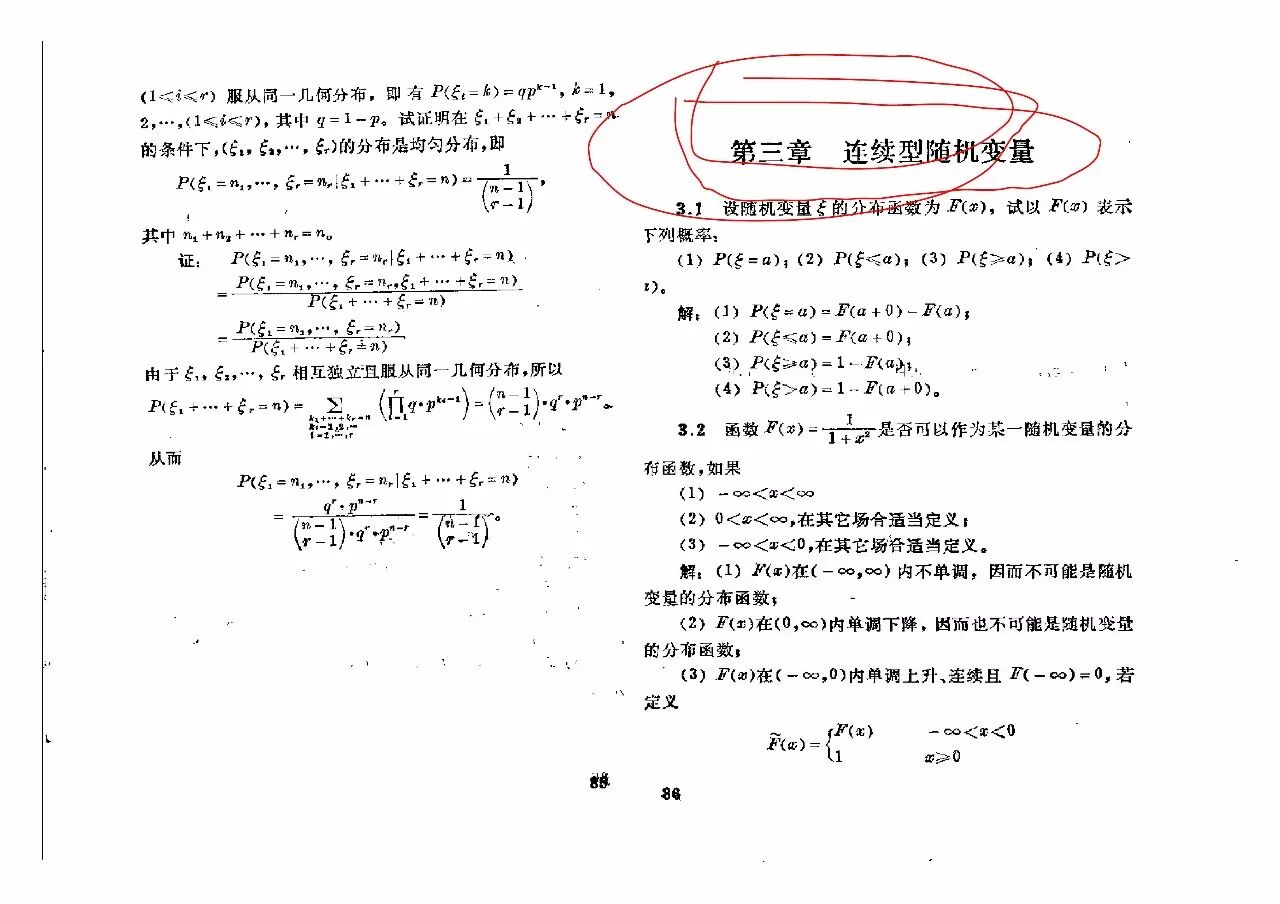 (1≤i≤r) 服从同一几何分布，即有 P(ξᵢ=k)=qpᵏ⁻¹，k=1，
2,⋯,(1≤i≤r)，其中 q=1-p。试证明在 ξ₁+ξ₂+⋯+ξᵣ=n
的条件下，(ξ₁，ξ₂,⋯，ξᵣ)的分布是均匀分布，即
P(ξ₁=n₁,⋯，ξᵣ=nᵣ|ξ₁+⋯+ξᵣ=n)=1/\binom{n-1}{r-1}，
其中 n₁+n₂+⋯+nᵣ=n。
证： P(ξ₁=n₁,⋯，ξᵣ=nᵣ|ξ₁+⋯+ξᵣ=n)
=P(ξ₁=n₁,⋯，ξᵣ=nᵣ,ξ₁+⋯+ξᵣ=n)/P(ξ₁+⋯+ξᵣ=n)
=P(ξ₁=n₁,⋯，ξᵣ=nᵣ)/P(ξ₁+⋯+ξᵣ=n)
由于 ξ₁，ξ₂,⋯，ξᵣ 相互独立且服从同一几何分布，所以
P(ξ₁+⋯+ξᵣ=n)=\sum_{k₁+⋯+kᵣ=n, kᵢ=1,2,⋯, i=1,⋯,r}(\prod_{i=1}^{r} q·p^{kᵢ-1})=\binom{n-1}{r-1}·qʳ·pⁿ⁻ʳ。
从而
P(ξ₁=n₁,⋯，ξᵣ=nᵣ|ξ₁+⋯+ξᵣ=n)
=qʳ·pⁿ⁻ʳ/(\binom{n-1}{r-1}·qʳ·pⁿ⁻ʳ)=1/\binom{n-1}{r-1}。
85
第三章 连续型随机变量
3.1 设随机变量 ξ 的分布函数为 F(x)，试以 F(x) 表示
下列概率：
(1) P(ξ=a)；(2) P(ξ≤a)；(3) P(ξ≥a)；(4) P(ξ>
)。
解：(1) P(ξ=a)=F(a+0)-F(a)；
(2) P(ξ≤a)=F(a+0)；
(3) P(ξ≥a)=1-F(a)；
(4) P(ξ>a)=1-F(a+0)。
3.2 函数 F(x)=1/(1+x²)是否可以作为某一随机变量的分
布函数，如果
(1) -∞<x<∞
(2) 0<x<∞，在其它场合适当定义；
(3) -∞<x<0，在其它场合适当定义。
解：(1) F(x)在(-∞,∞) 内不单调，因而不可能是随机
变量的分布函数；
(2) F(x)在(0,∞)内单调下降，因而也不可能是随机变量
的分布函数；
(3) F(x)在(-∞,0)内单调上升、连续且 F(-∞)=0，若
定义
F̃(x)={F(x) -∞<x<0
1 x≥0
86